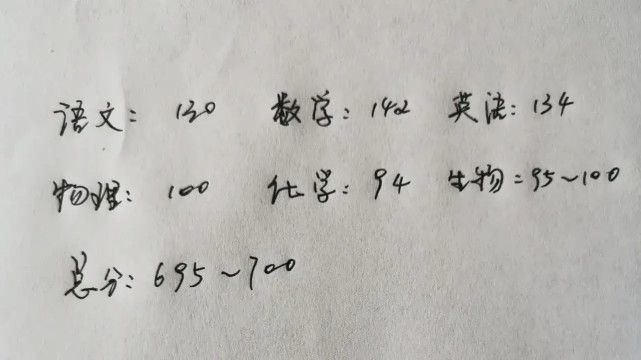 语文: 130 数学: 142 英语: 134
物理: 100 化学: 94 生物: 95~100
总分: 695~700